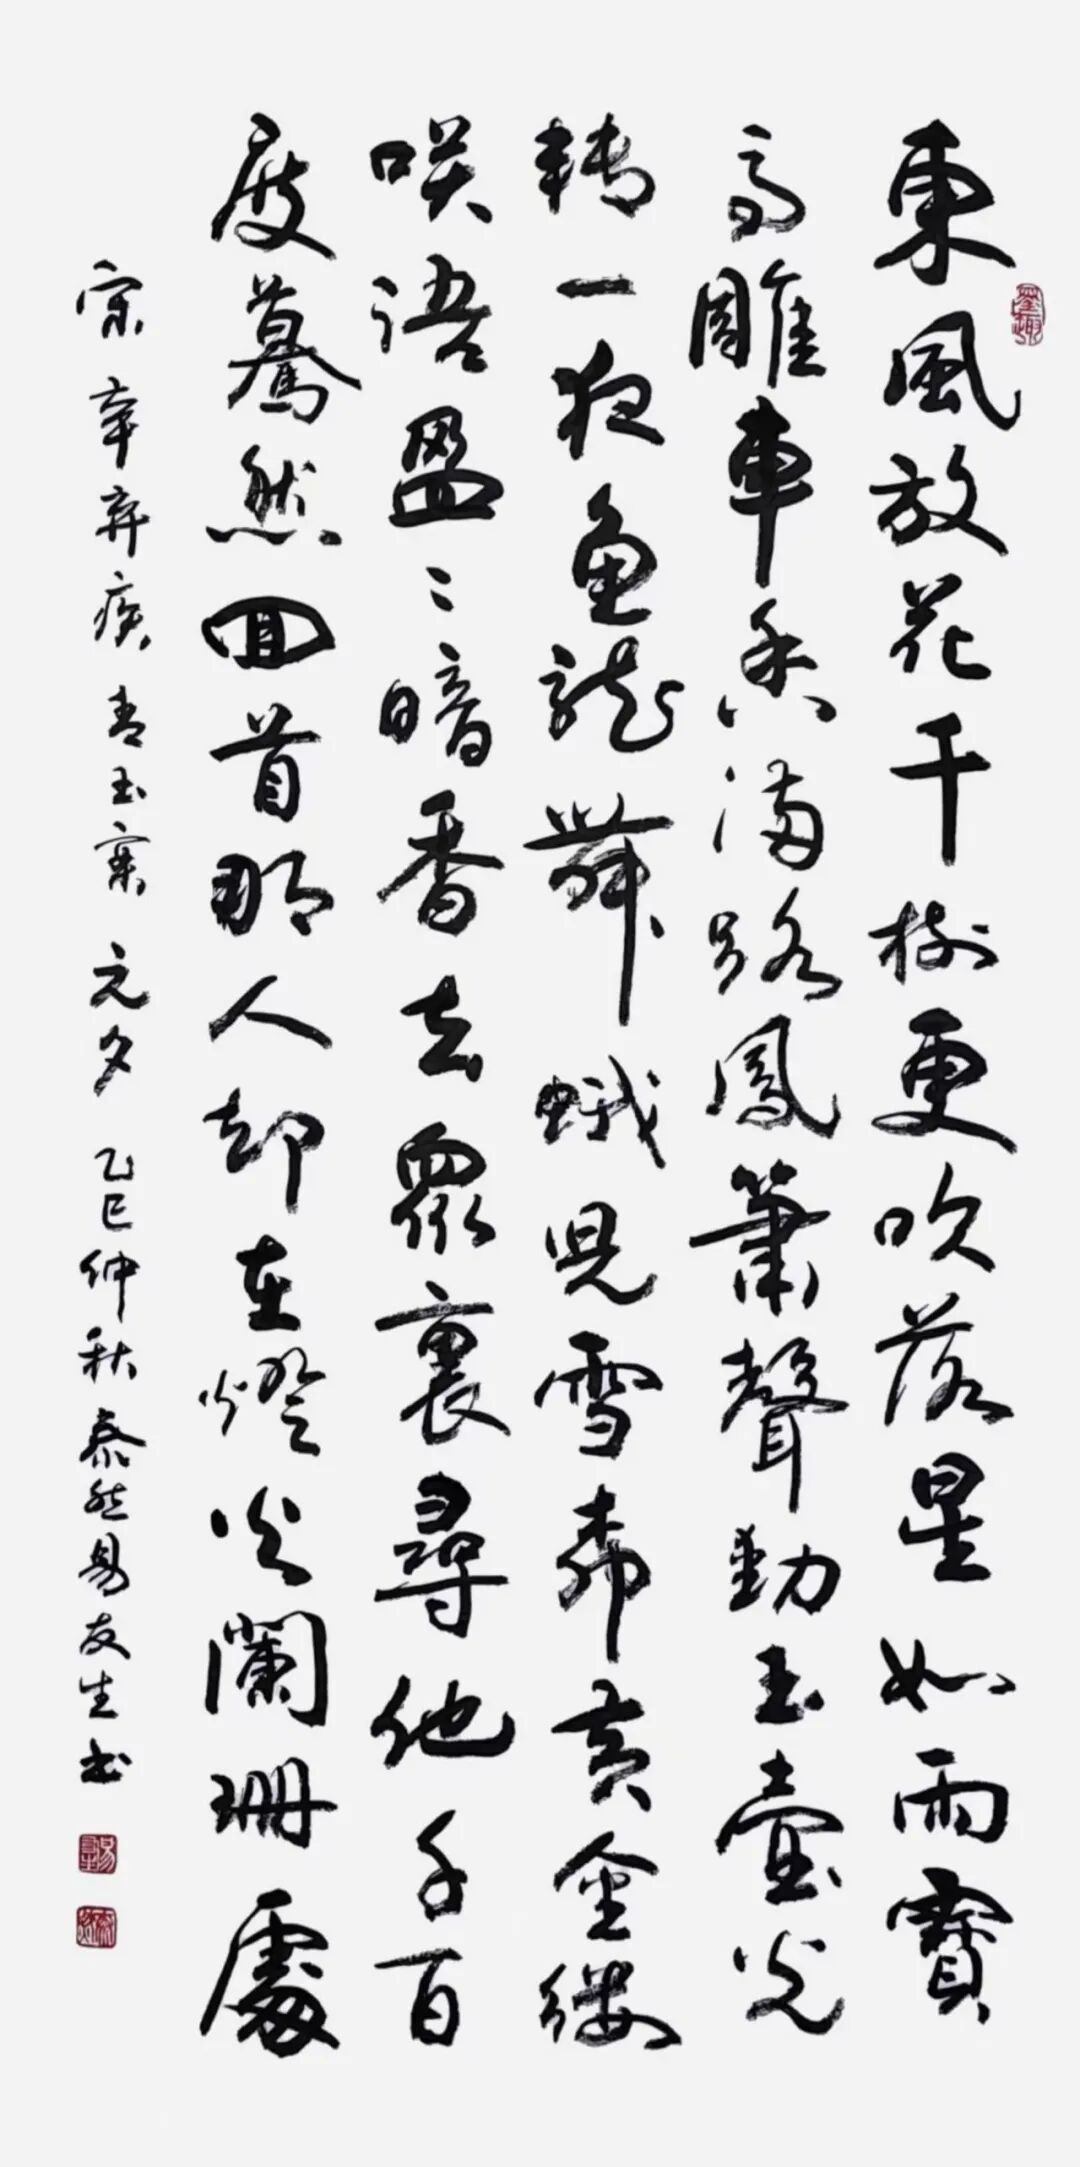 東風放花千樹更吹落星如雨寶
馬雕車香滿路鳳簫聲動玉壺光
轉一夜魚龍舞蛾兒雪柳黃金縷
咲語盈〻暗香去眾裏尋他千百
度驀然回首那人却在燈火闌珊處
宋辛弃疾青玉案 元夕 乙巳仲秋泰然易友生书